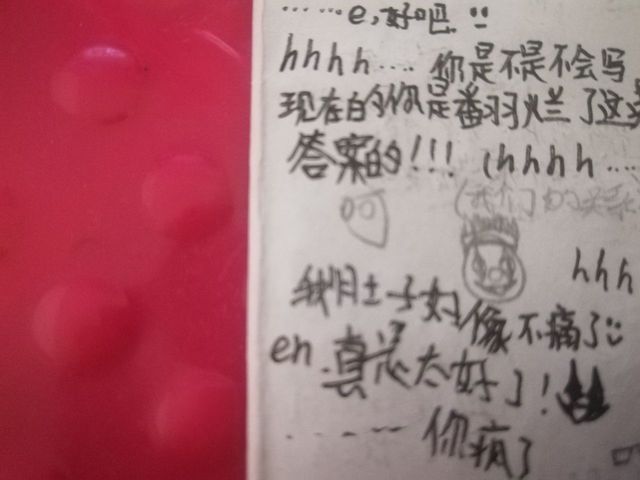 ……e,好吧
hhhh….你是不是不会写
现在的你是翻烂了这
答案的!!!(hhhh….
(我们的关系
hhh
我肚子好像不痛了
en.真是太好了!
------你疯了